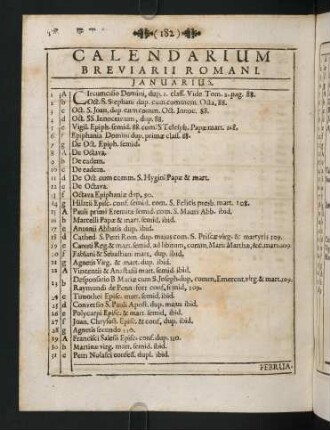 (182)
CALENDARIUM
BREVIARII ROMANI.
JANUARIUS.
1 A Circumcisio Domini, dup. 2. class. Vide Tom. 2. pag. 88.
2 b Oct. S. Stephani dup. cum comm. Octa, 88.
3 c Oct. S. Joan. dup. cum comm. Oct. Innoc. 88.
4 d Oct. SS. Innocentum, dup. 88.
5 e Vigil. Epiph. semid. 88. com. S Telesph. Papæ mart. 108.
6 f Epiphania Domini dup. primæ class. 88.
7 g De Oct. Epiph. semid.
8 A De Octava.
9 b De eadem.
10 c De eadem.
11 d De Oct. cum comm. S. Hygini Papæ & mart.
12 e De Octava.
13 f Octava Epiphaniæ dup, 90.
14 g Hilarii Episc. conf. semid. com. S. Felicis presb. mart. 108.
15 A Pauli primi Eremitæ semid. com. S. Mauri Abb. ibid.
16 b Marcelli Papæ & mart. semid, ibid.
17 c Antonii Abbatis dup. ibid.
18 d Cathed. S. Petri Rom. dup. maius com. S. Priscæ virg. & martyris 109.
19 e Canuti Reg & mart. semid. ad libitum, comm. Marii Marthæ, &c. mart. 109
20 f Fabiani & Sebastiani mart, dup. ibid.
21 g Agnetis Virg. & mart. dup. ibid.
22 A Vincentii & Anastasii mart. semid. ibid.
23 b Desponsatio B Mariæ cum S. Joseph. dup, comm, Emerent. virg. & mart. 109.
Raymundi de Penn. fort conf, semid, 109.
24 c Timothei Episc. mart. semid, ibid.
25 d Conversio S. Pauli Apost. dup. maius ibid.
26 e Polycarpi Episc. & mart. semid, ibid.
27 f Joan, Chrysost. Episc. & conf, dup. ibid.
28 g Agnetis secundo 110.
29 A Francisci Salesii Episc. conf. dup. 110.
30 b Martinæ virg. mart. semid. ibid.
31 c Petri Nolasci confess. dupl. ibid.
FEBRUA-